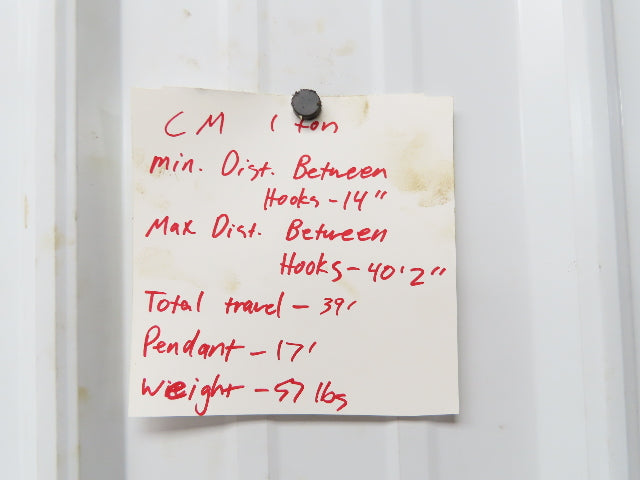 CM 1 ton
Min. Dist. Between
Hooks - 14"
Max Dist. Between
Hooks - 40'2"
Total travel - 39'
Pendant - 17'
Weight - 57 lbs